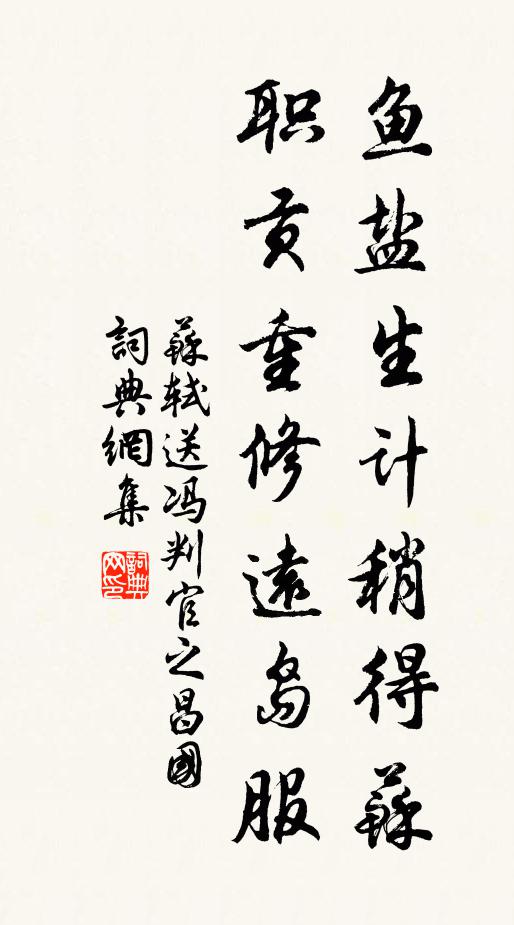 鱼盐生计稍得蘇
职贡重修遠岛服
蘇轼送冯判官之昌國
詞典網集
詞典网印